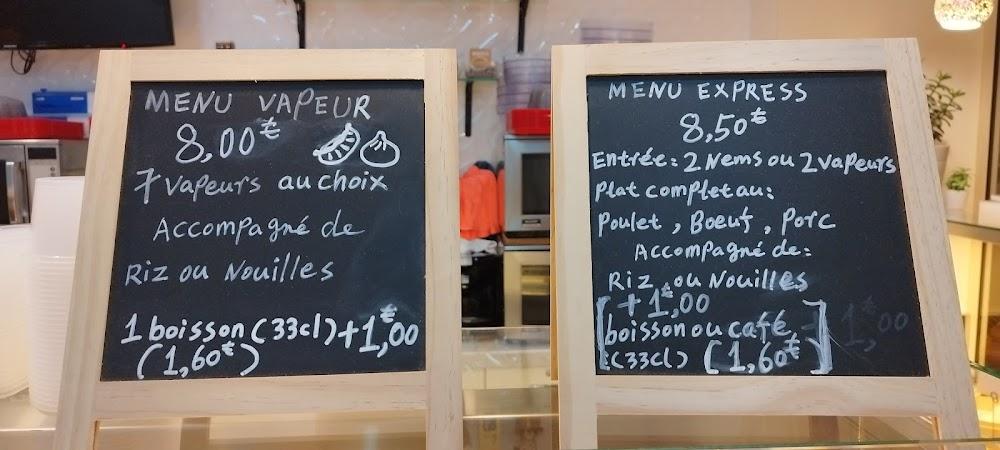 MENU VAPEUR
8,00€
7 vapeurs au choix
Accompagné de
Riz ou Nouilles
1 boisson (33cl) + 1,00€
(1,60€)
MENU EXPRESS
8,50€
Entrée: 2 Nems ou 2 vapeurs
Plat complet au:
Poulet, Boeuf, Porc
Accompagné de:
Riz ou Nouilles
[+ 1€,00
boisson ou café] 1€,00
(33cl) (1,60€)